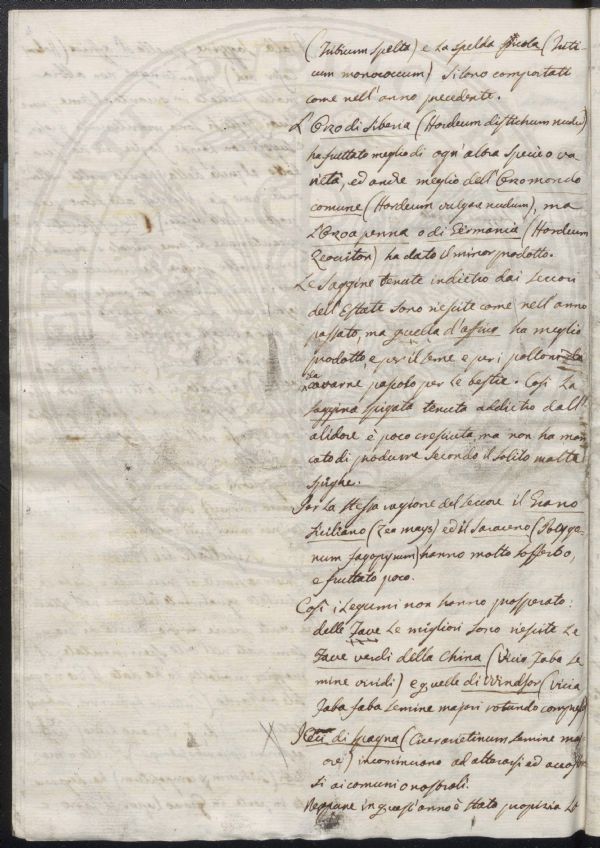 (Triticum Spelta) e La Spelda picola (Triti-
cum monococcum) si sono comportati
come nell'anno precedente.
L'Orzo di Siberia (Hordeum distichum nudu)
ha fruttato meglio di ogn'altra specie o va
rietà, ed anche meglio dell'Orzo mondo
comune (Hordeum vulgare nudum), ma
L'Orzo a penna o di Germania (Hordeum
Zeocriton) ha dato il minor prodotto.
Le Saggine tenute indietro dai seccori
dell'Estate sono riescite come nell'anno
passato, ma quella d'affrica ha meglio
prodotto, e per il seme e per i polloni
cavarne pascolo per le bestie. Così La
saggina spigata tenuta addietro dall'
alidore è poco cresciuta, ma non ha man
cato di produrre secondo il solito molte
spighe.
Per La stessa ragione del seccore il Grano
Siciliano (Zea mays) ed il Saraceno (Polygo-
num fagopyrum) hanno molto sofferto,
e fruttato poco.
Così i Legumi non hanno prosperato:
delle Fave Le migliori sono riescite Le
Fave verdi della China (Vicia Faba se
mine viridi) e quelle di Windsor (Vicia
Faba faba semine majori rotundo compress)
I Ceci di Spagna (Cicer arietinum semine maj
ore) incominciano ad alterarsi ed accos
ti ai comuni o nostrali.
Neppure in quest'anno è stato propizia La